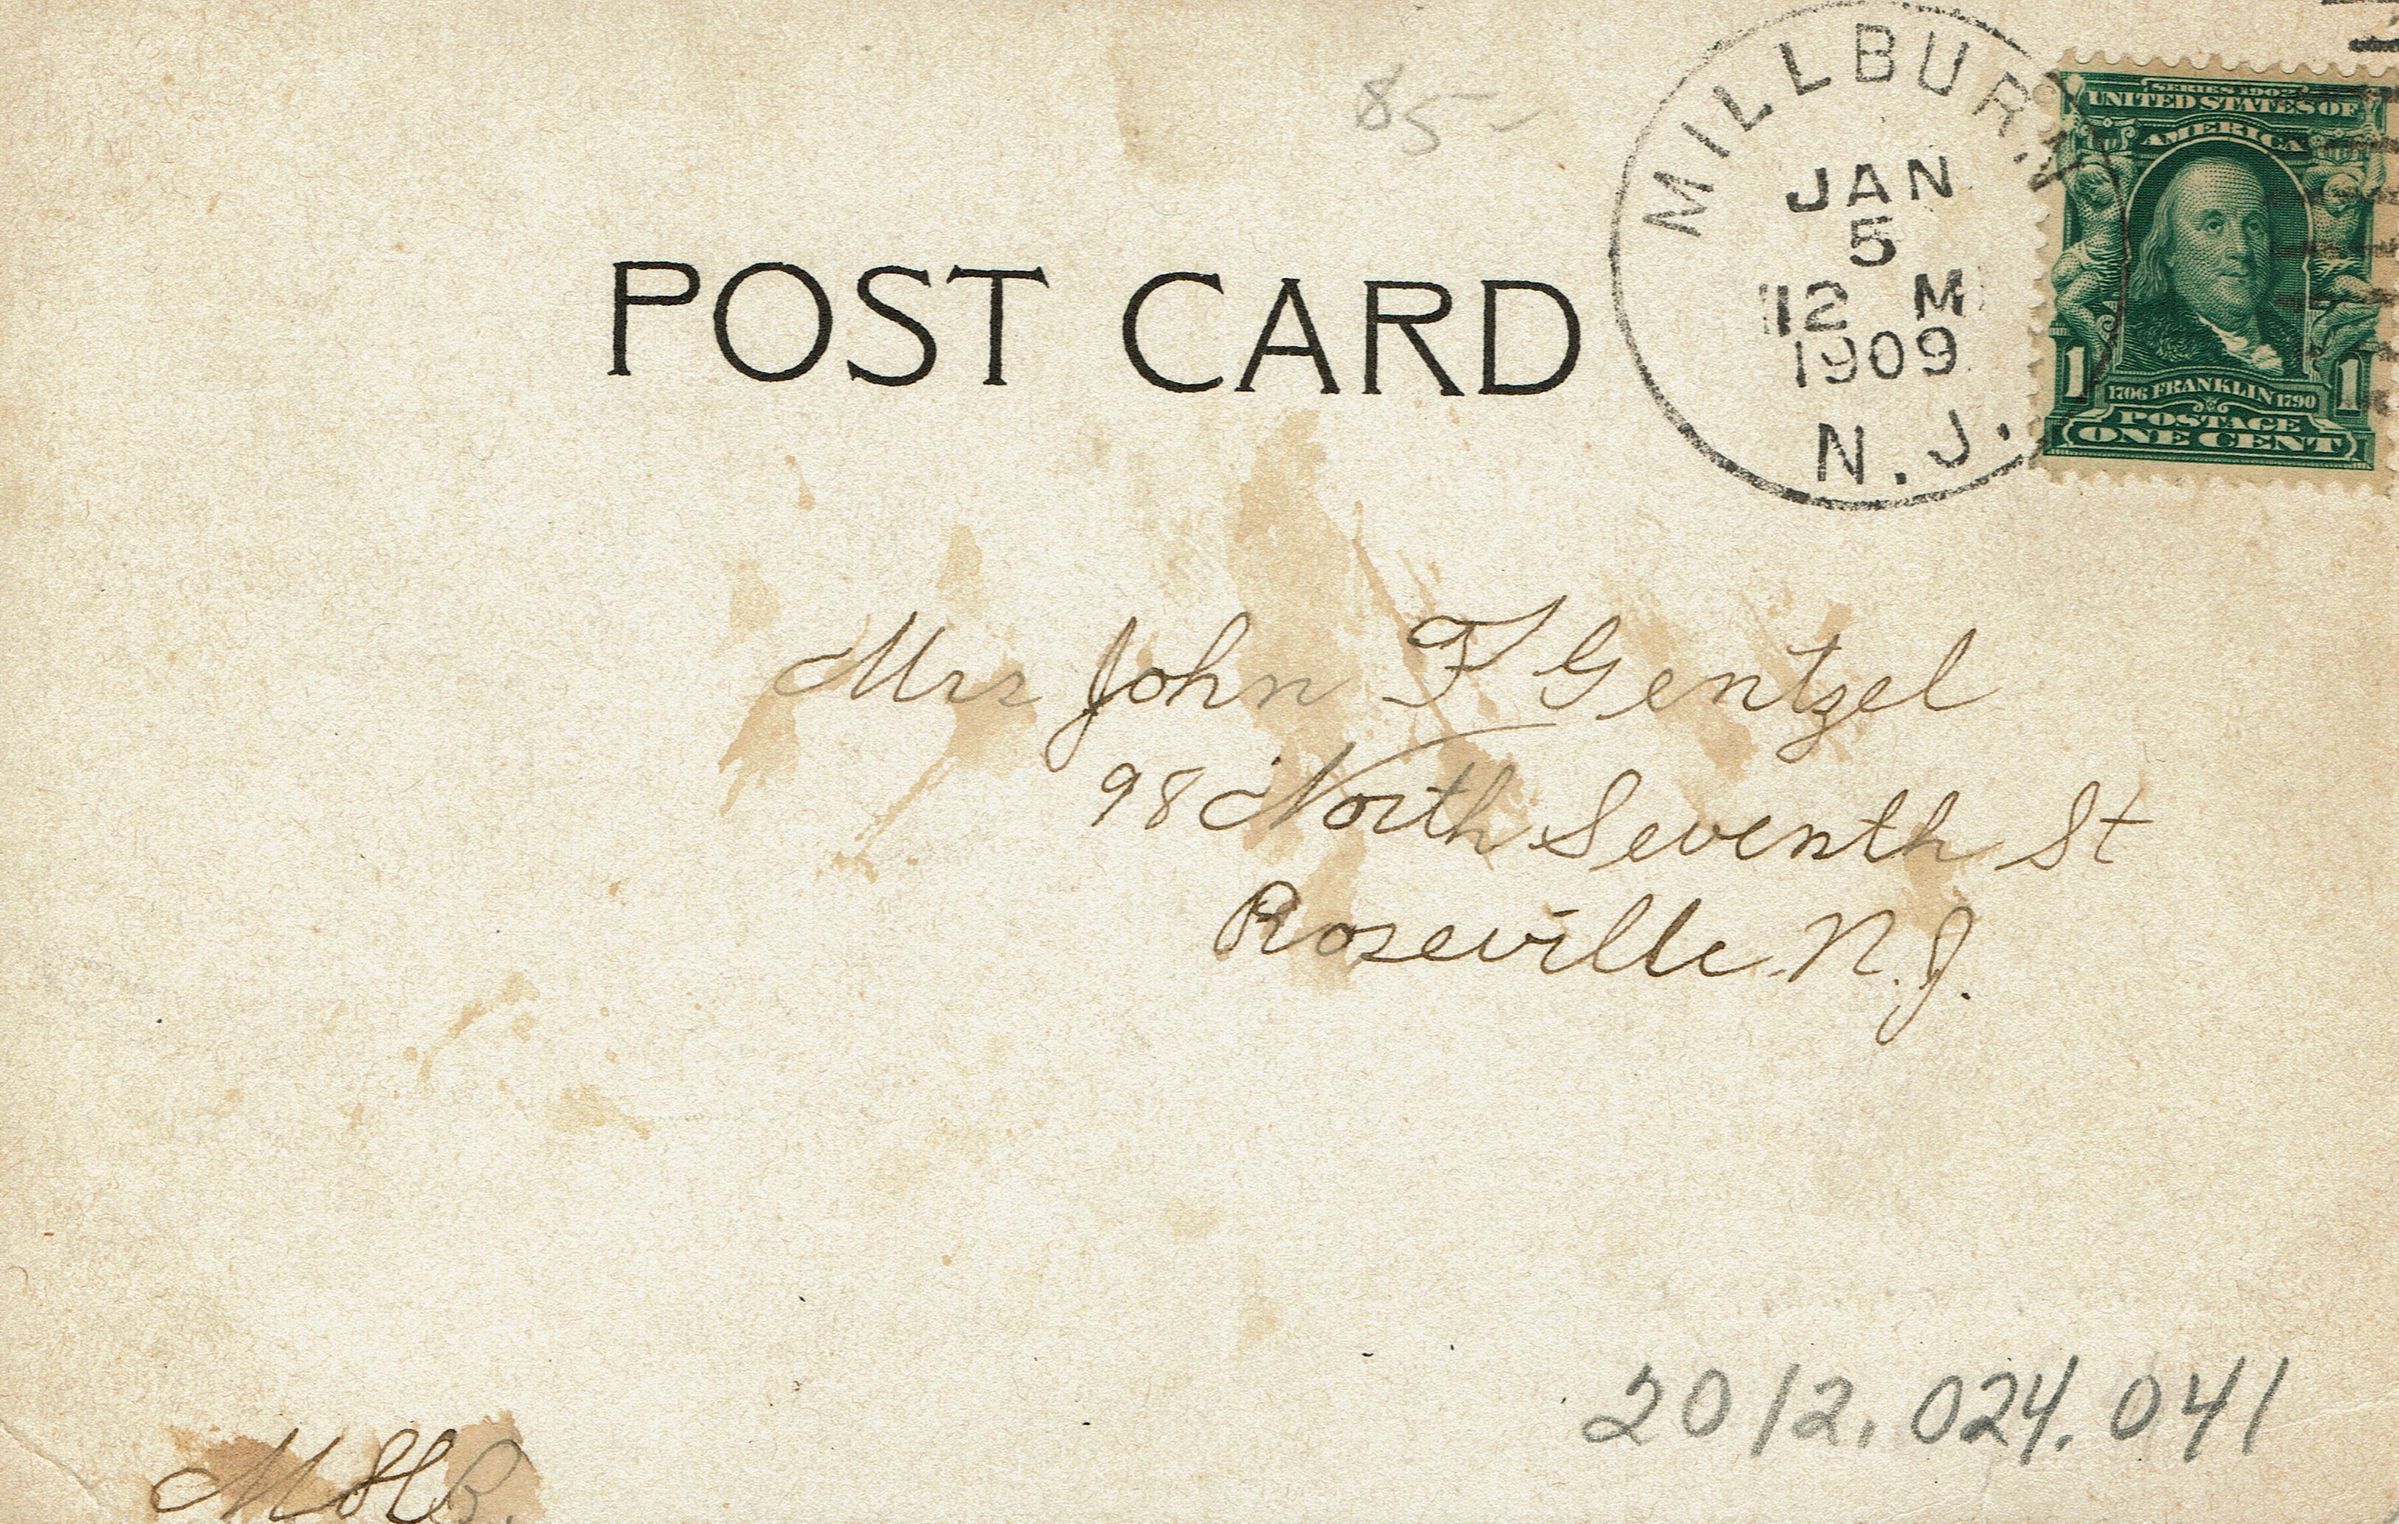 85-
MILLBURN
JAN
5
12 M
1909
N.J.
SERIES 1902
UNITED STATES OF
AMERICA
1 1706 FRANKLIN 1790 1
POSTAGE
ONE CENT
POST CARD
Mrs John F Gentzel
98 North Seventh St
Roseville N.J.
2012.024.041
M H B.